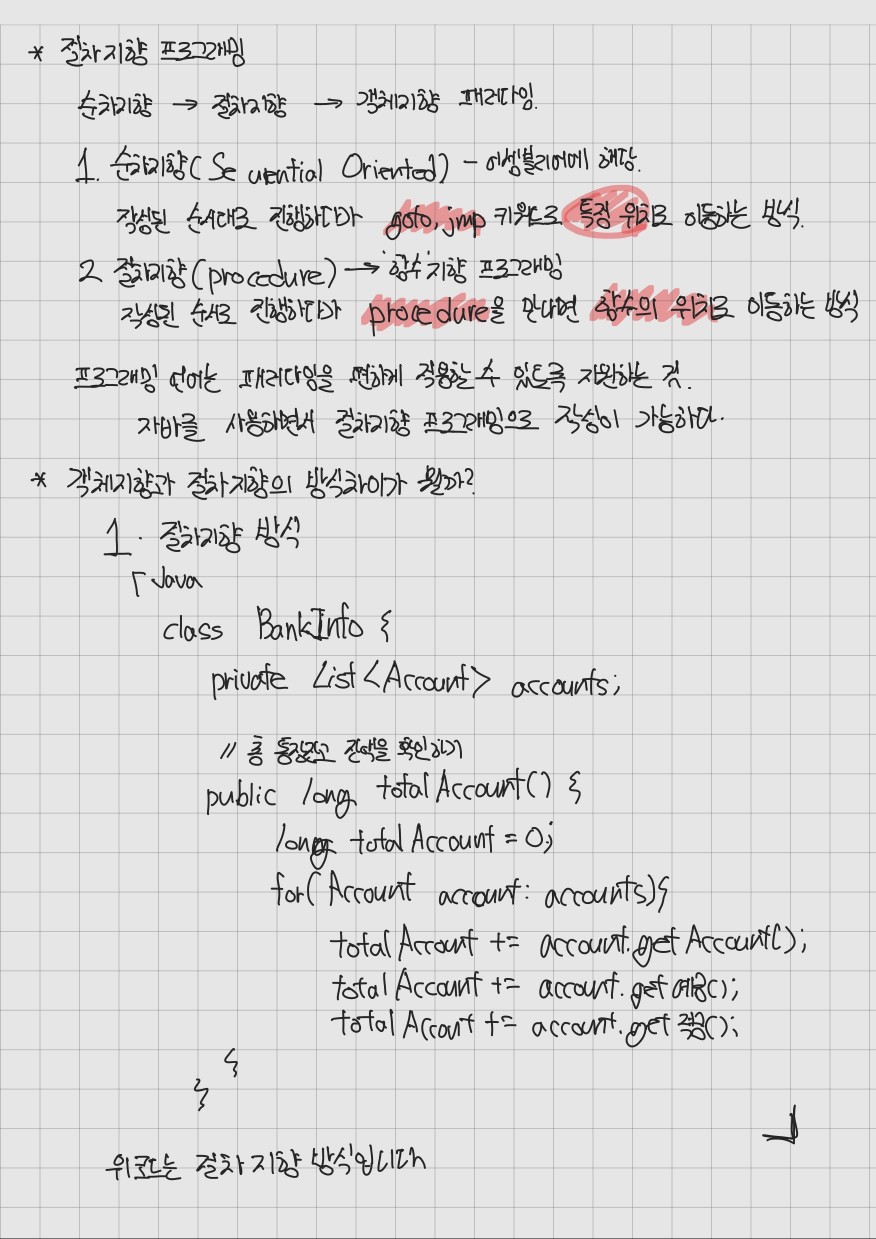 * 절차지향 프로그래밍
순차지향 → 절차지향 → 객체지향 패러다임.
1. 순차지향(Se uential Oriented) - 어셈블리어에 해당.
작성된 순서대로 진행하다가 goto, jmp 키워드로 특정 위치로 이동하는 방식.
2 절차지향(procedure) → '함수' 지향 프로그래밍
작성된 순서로 진행하다가 procedure을 만나면 함수의 위치로 이동하는 방식
프로그래밍 언어는 패러다임을 편하게 적용할 수 있도록 지원하는 것.
자바를 사용하면서 절차지향 프로그래밍으로 작성이 가능하다.
* 객체지향과 절차지향의 방식차이가 뭘까?
1. 절차지향 방식
「Java
class BankInfo {
private List<Account> accounts;
// 총 통장잔고 잔액을 확인하기
public long totalAccount() {
long totalAccount = 0;
for(Account account: accounts){
totalAccount += account.getAccount();
totalAccount += account.get예금();
totalAccount += account.get적금();
}
}
」
위코드는 절차지향 방식입니다